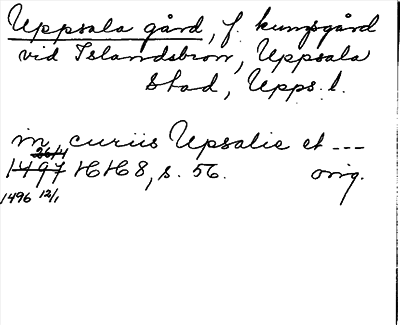 Uppsala gård, f. kungsgård
vid Islandsbron, Uppsala
stad, Upps. l.
in curiis Upsalie et ---
26/4
1497 HH 8, s. 56. orig.
1496 12/1